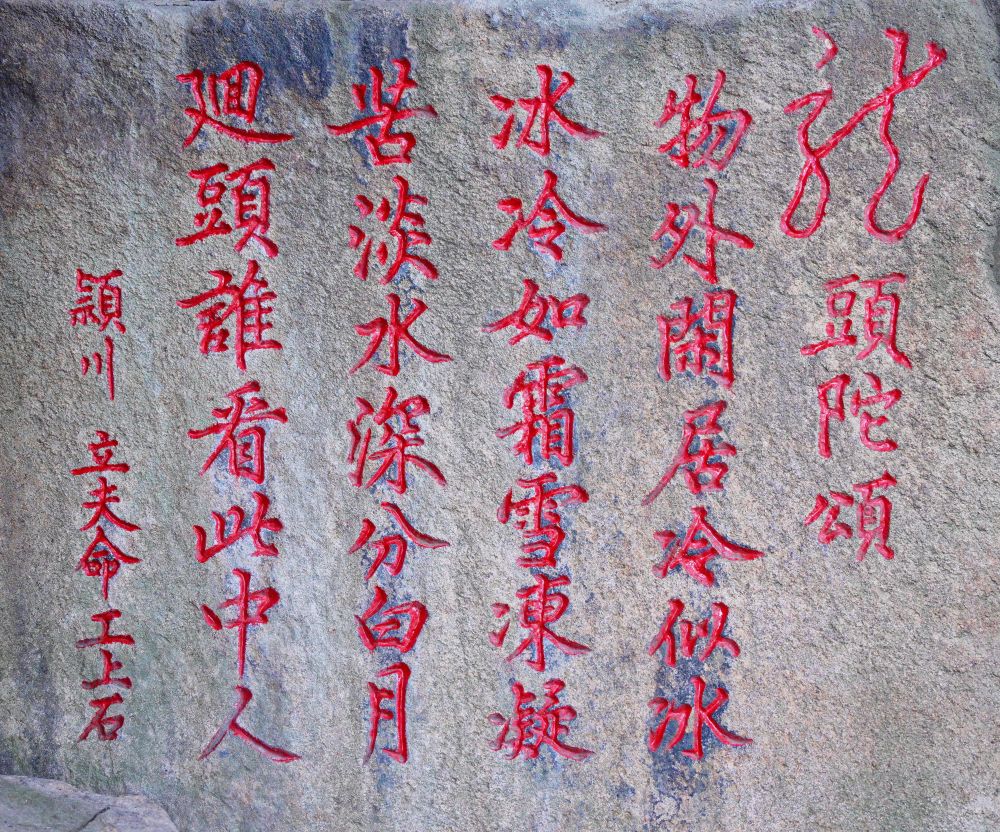 頭陀頌
物外閑居冷似冰
冰冷如霜雪凍凝
苦淡水深分白月
廻頭誰看此中人
頴川 立夫命工上石